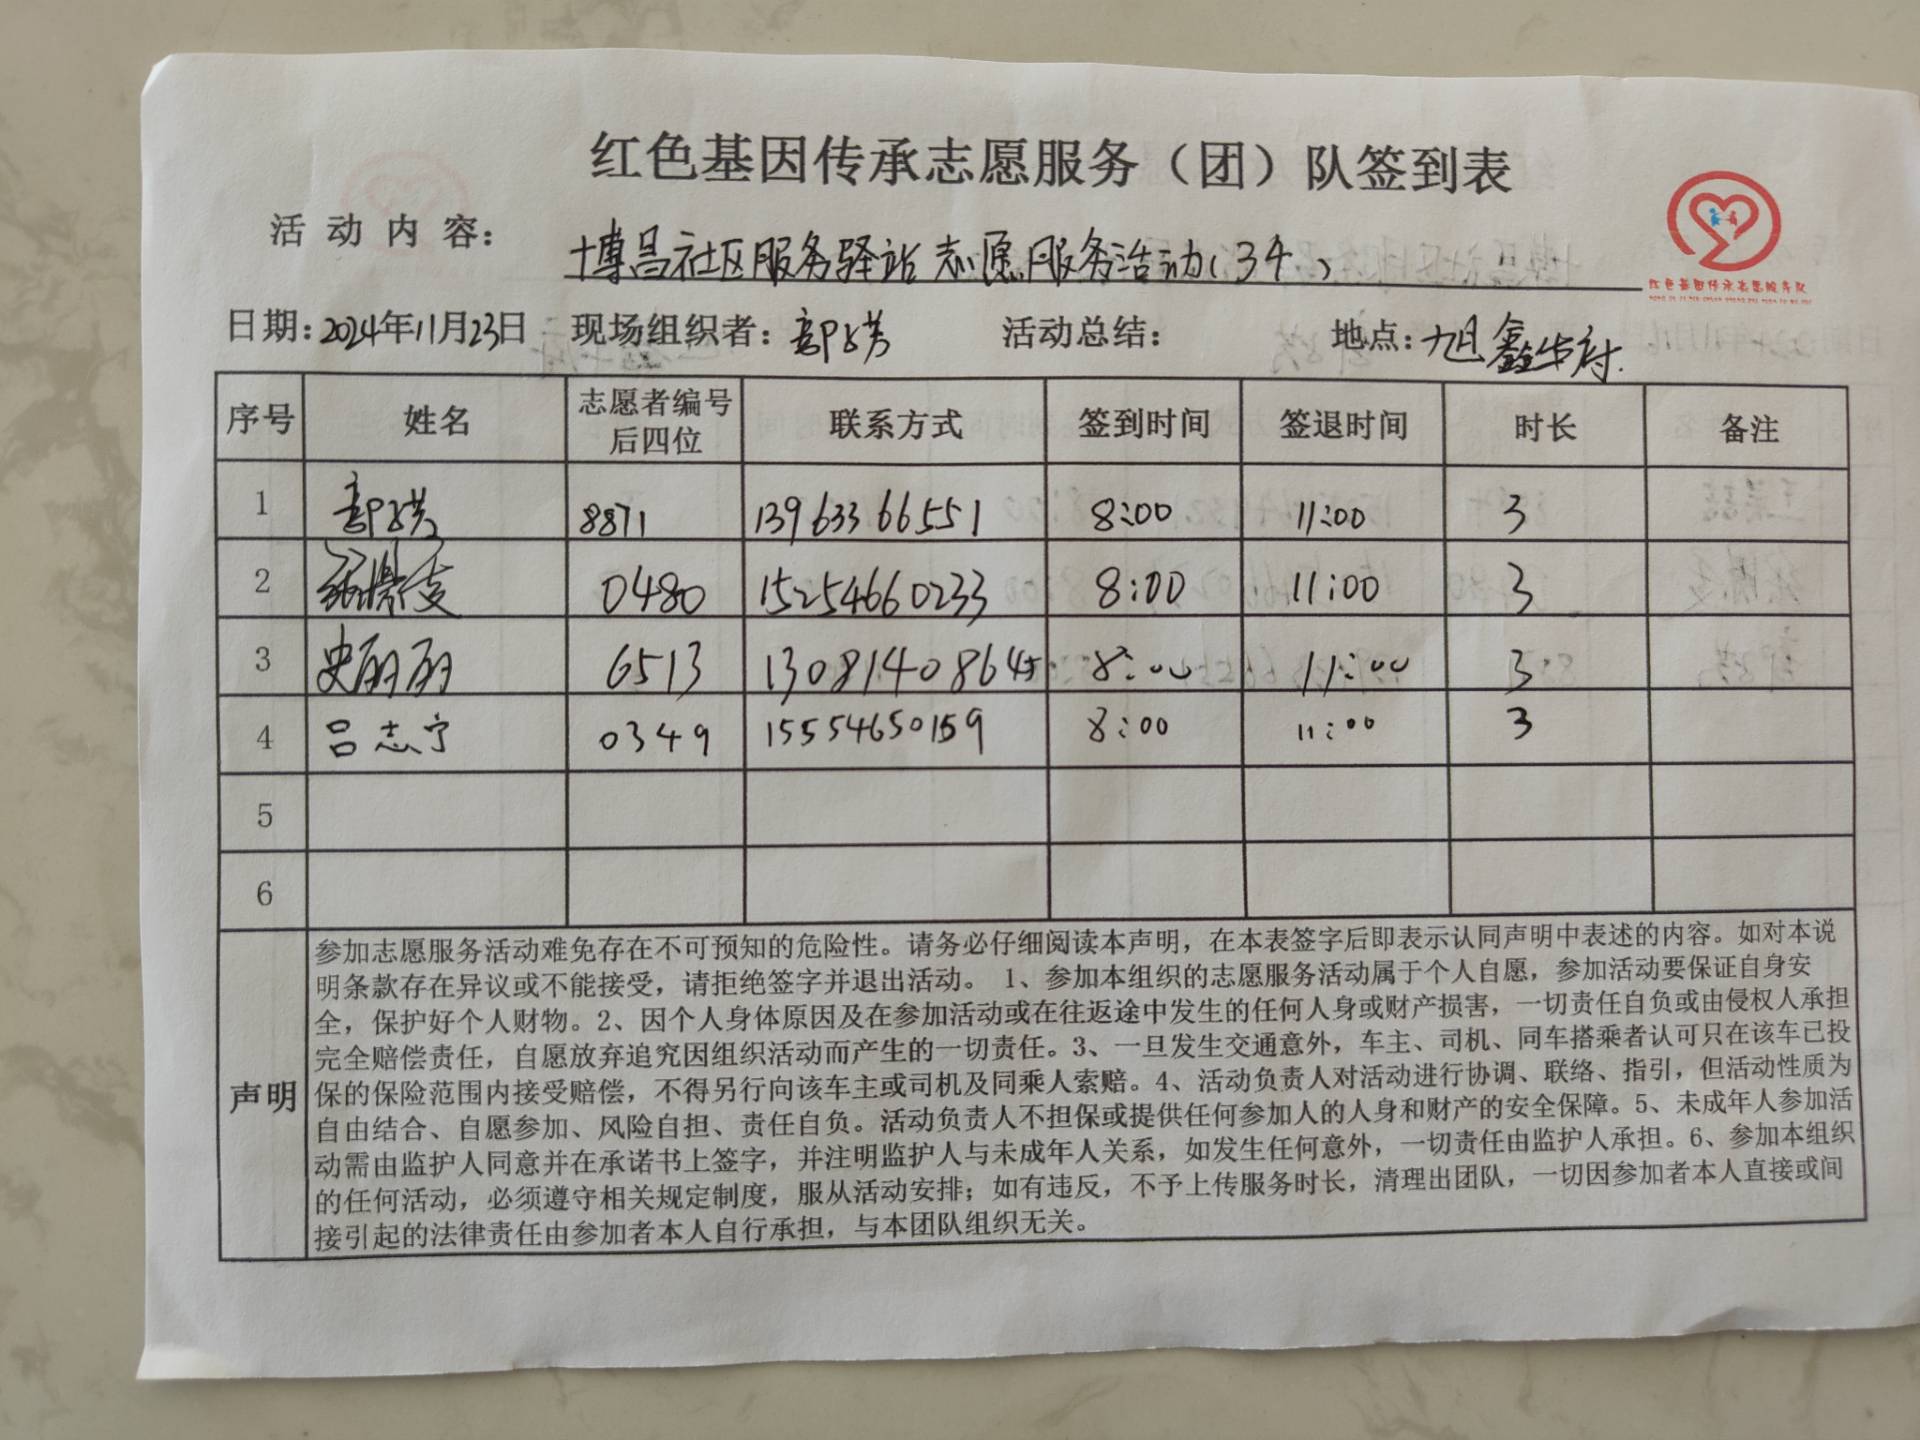 红色基因传承志愿服务（团）队签到表
活动内容： 博昌社区服务驿站志愿服务活动（34）
红色基因传承志愿服务队
日期：2024年11月23日 现场组织者： 活动总结： 地点：旭鑫华府.
序号 姓名 志愿者编号后四位 联系方式 签到时间 签退时间 时长 备注
1 8871 13963366551 8:00 11:00 3
2 0480 15254660233 8:00 11:00 3
3 史丽丽 6513 13081408645 8:00 11:00 3
4 吕志宁 0349 15554650159 8:00 11:00 3
5
6
声明
参加志愿服务活动难免存在不可预知的危险性。请务必仔细阅读本声明，在本表签字后即表示认同声明中表述的内容。如对本说
明条款存在异议或不能接受，请拒绝签字并退出活动。 1、参加本组织的志愿服务活动属于个人自愿，参加活动要保证自身安
全，保护好个人财物。2、因个人身体原因及在参加活动或在往返途中发生的任何人身或财产损害，一切责任自负或由侵权人承担
完全赔偿责任，自愿放弃追究因组织活动而产生的一切责任。3、一旦发生交通意外，车主、司机、同车搭乘者认可只在该车已投
保的保险范围内接受赔偿，不得另行向该车主或司机及同乘人索赔。4、活动负责人对活动进行协调、联络、指引，但活动性质为
自由结合、自愿参加、风险自担、责任自负。活动负责人不担保或提供任何参加人的人身和财产的安全保障。5、未成年人参加活
动需由监护人同意并在承诺书上签字，并注明监护人与未成年人关系，如发生任何意外，一切责任由监护人承担。6、参加本组织
的任何活动，必须遵守相关规定制度，服从活动安排；如有违反，不予上传服务时长，清理出团队，一切因参加者本人直接或间
接引起的法律责任由参加者本人自行承担，与本团队组织无关。